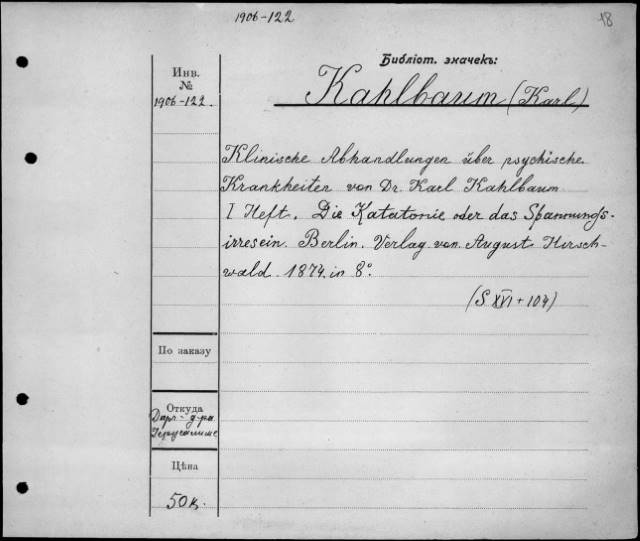 1906-122
18
Библіот. значекъ:
Инв.
№
1906-122.
Kahlbaum (Karl)
Klinische Abhandlungen über psychische
Krankheiten von Dr. Karl Kahlbaum
I Heft. Die Katatonie oder das Spannungs-
irresein. Berlin. Verlag von August Hirsch-
wald. 1874. in 8°.
(S XVI + 104)
По заказу
Откуда
Даръ д-ра
Цѣна
50 к.